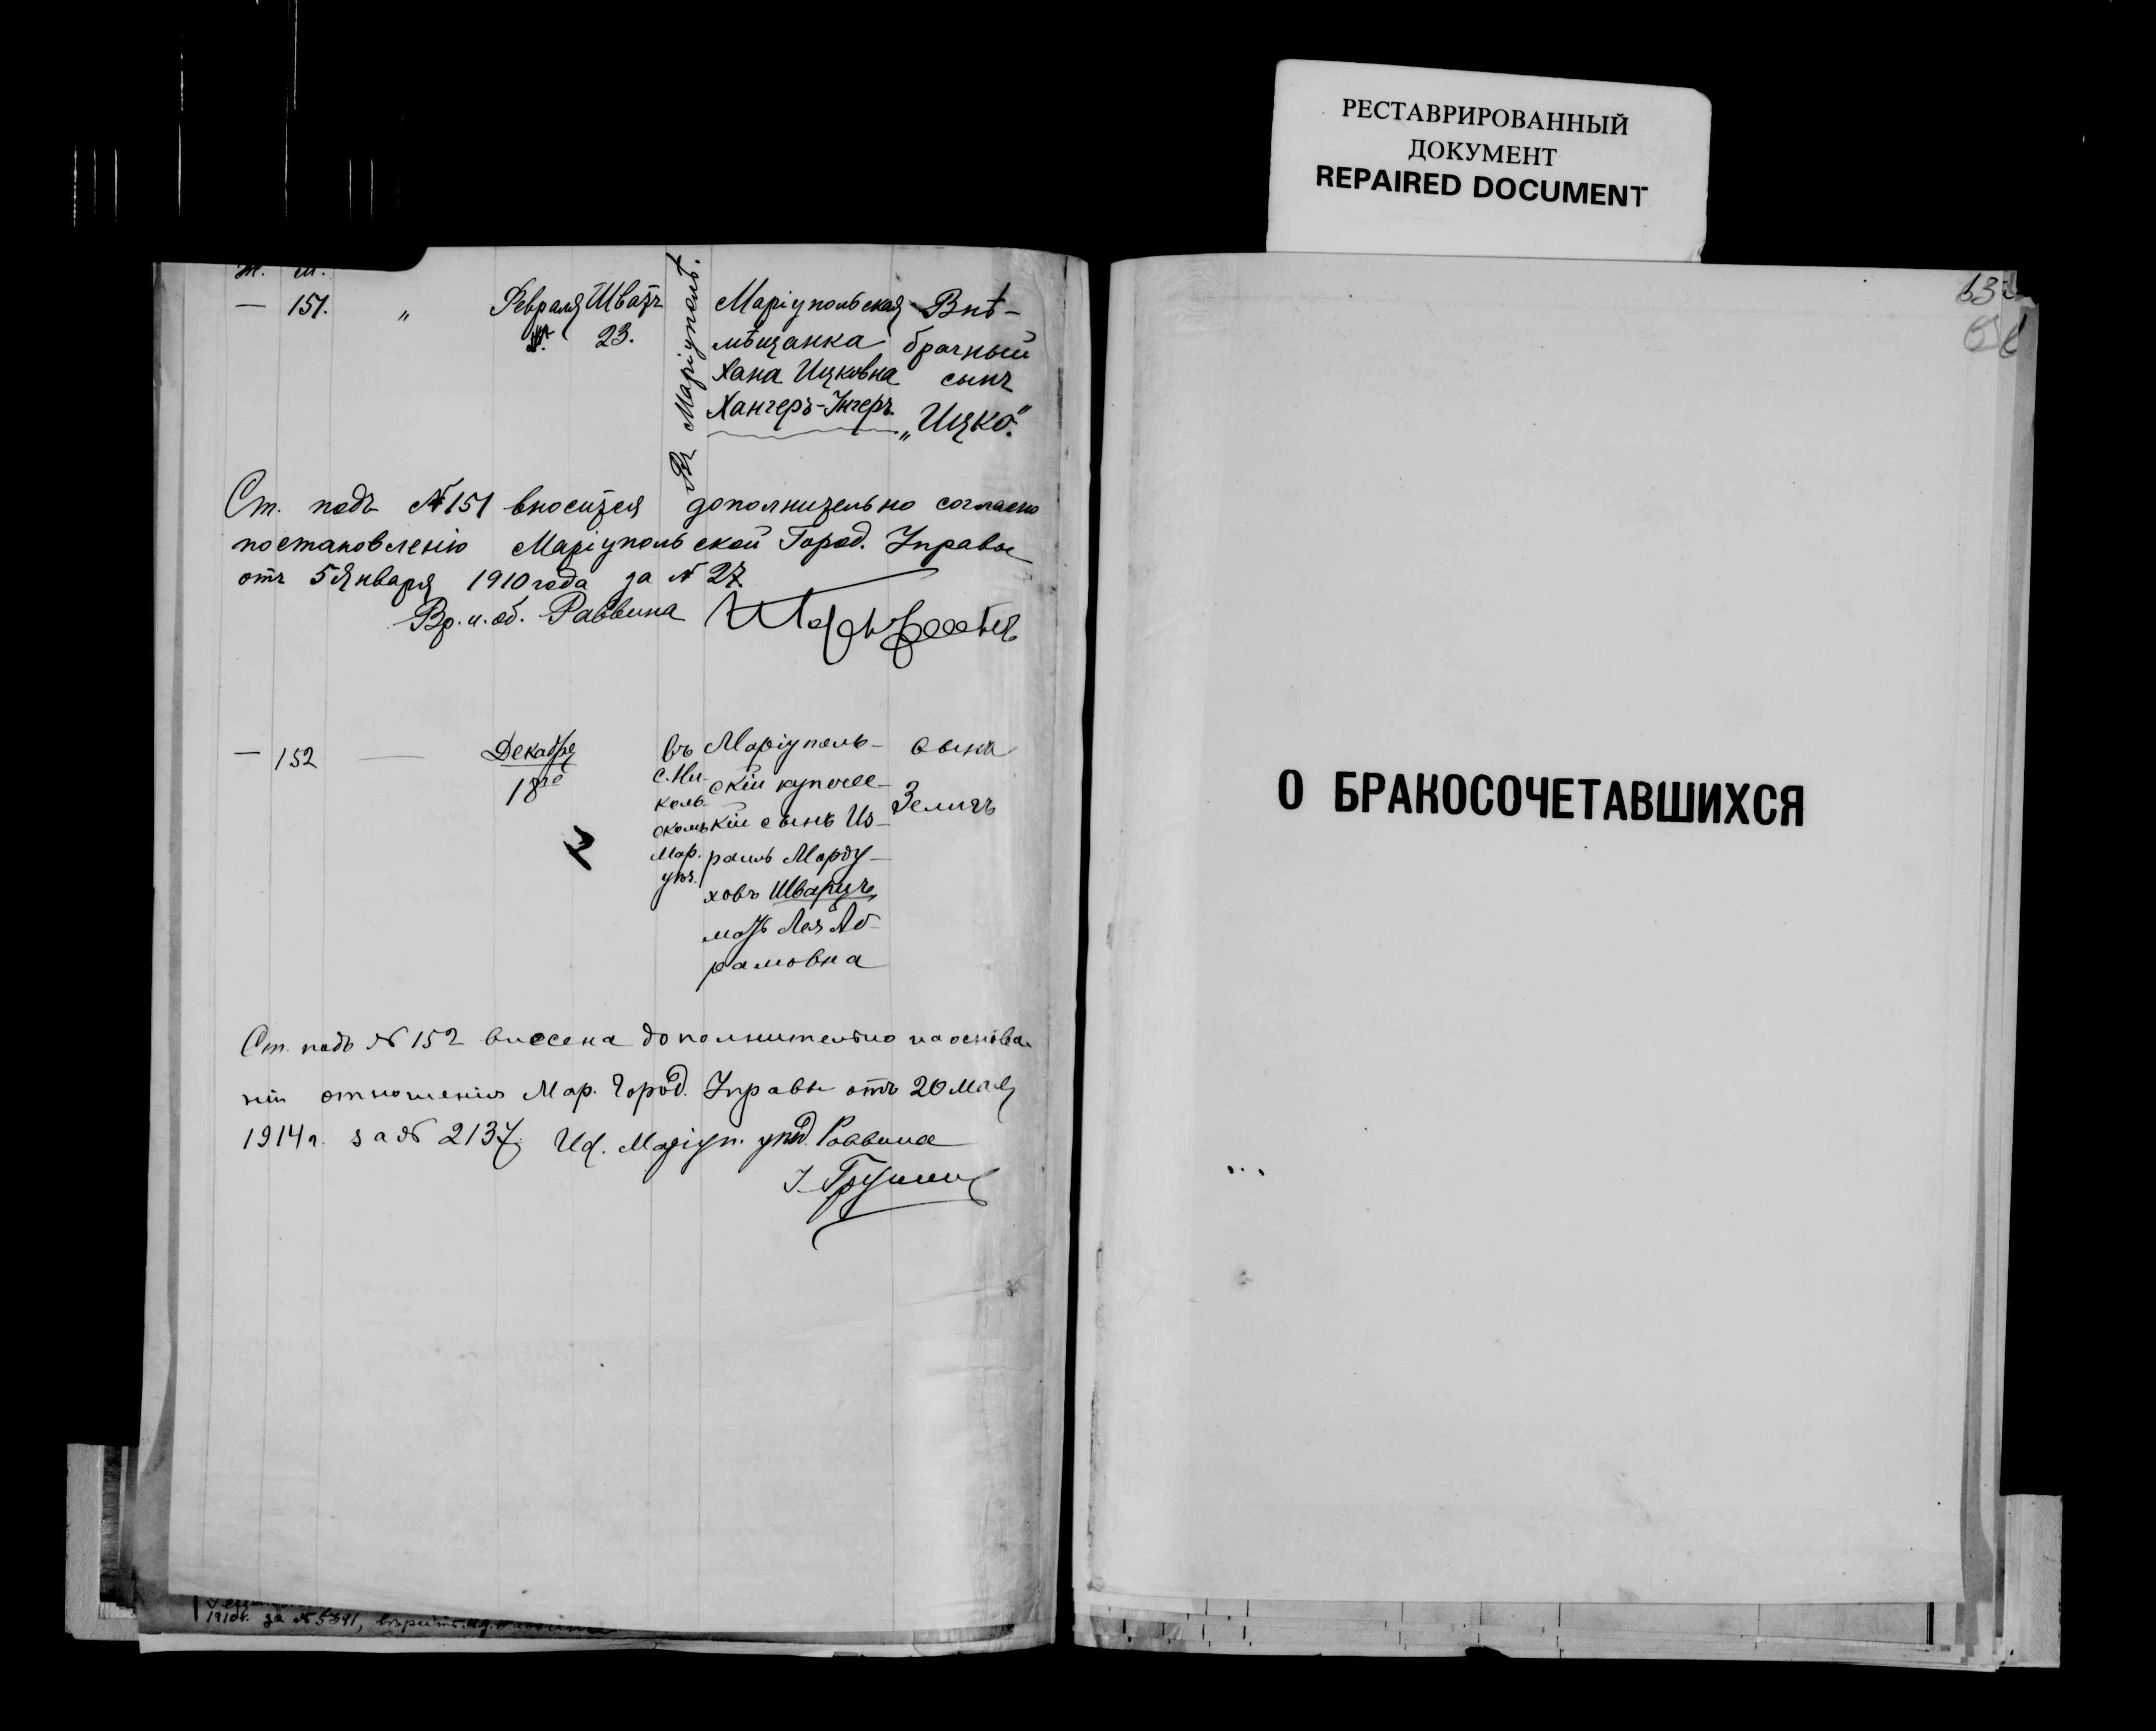 РЕСТАВРИРОВАННЫЙ
ДОКУМЕНТ
REPAIRED DOCUMENT
Ж. м.
— 151. „ Февраля Шватъ 23.
Въ Маріуполѣ.
Маріупольская
мѣщанка
Хана Ицковна
Хангеръ-Унгеръ.
Внѣ-
брачный
сынъ
„Ицко“.
Ст. подъ № 151 вносится дополнительно согласно
постановленію Маріупольской Город. Управы
отъ 5 Января 1910 года за № 27.
Вр. и. об. Раввина
— 152 — Декабря
18го
въ
с. Ни-
коль-
скомъ
Мар.
уѣз.
Маріуполь-
скій купече-
кій сынъ Из-
раиль Морду-
ховъ Шварцъ,
мать Лея Аб-
рамовна
сынъ
Зеликъ
Ст. подъ № 152 внесена дополнительно на основа-
ніи отношенія Мар. Город. Управы отъ 20 Мая
1914 г. за № 2137. Маріуп. Раввина
за № 5391,
О БРАКОСОЧЕТАВШИХСЯ